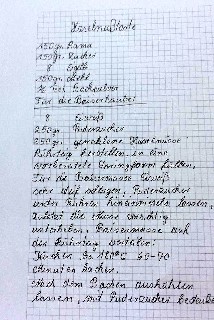 Haselnußtorte
150gr. Rama
150gr. Zucker
8 Eigelb
150gr. Mehl
½ Pck Backpulver
Für die Baiserhaube:
8 Eiweiß
250gr Puderzucker
250gr gemahlene Haselnüsse
Rührteig herstellen in eine
vorbereitete Springform füllen,
Für die Baisermasse Eiweiß
sehr steif schlagen, Puderzucker
unter Rühren hineinrieseln lassen,
zuletzt die Nüsse vorsichtig
unterheben. Baisermasse auf
den Rührteig verteilen.
Kuchen bei 180°C 60-70
Minuten backen.
Nach dem Backen auskühlen
lassen, mit Puderzucker bestäuben